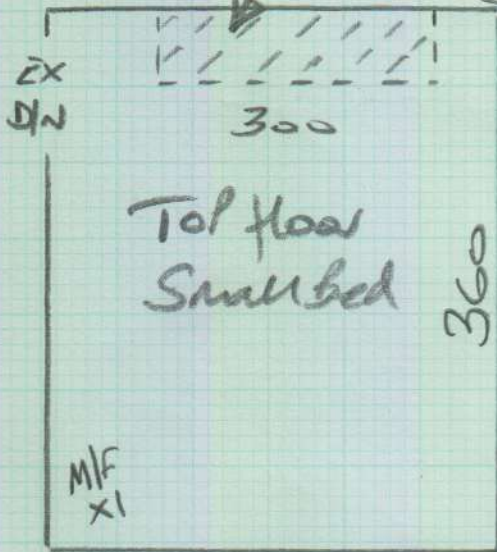 EX
D/N
300
Top floor
Small bed
360
M/F
X1